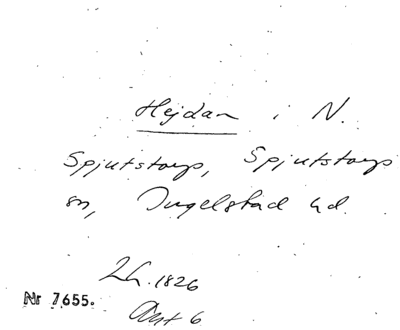 Hejdan i N.
Spjutstorp, Spjutstorps
sn, Ingelstad hd.
Lh. 1826
Akt 6
Nr 7655.